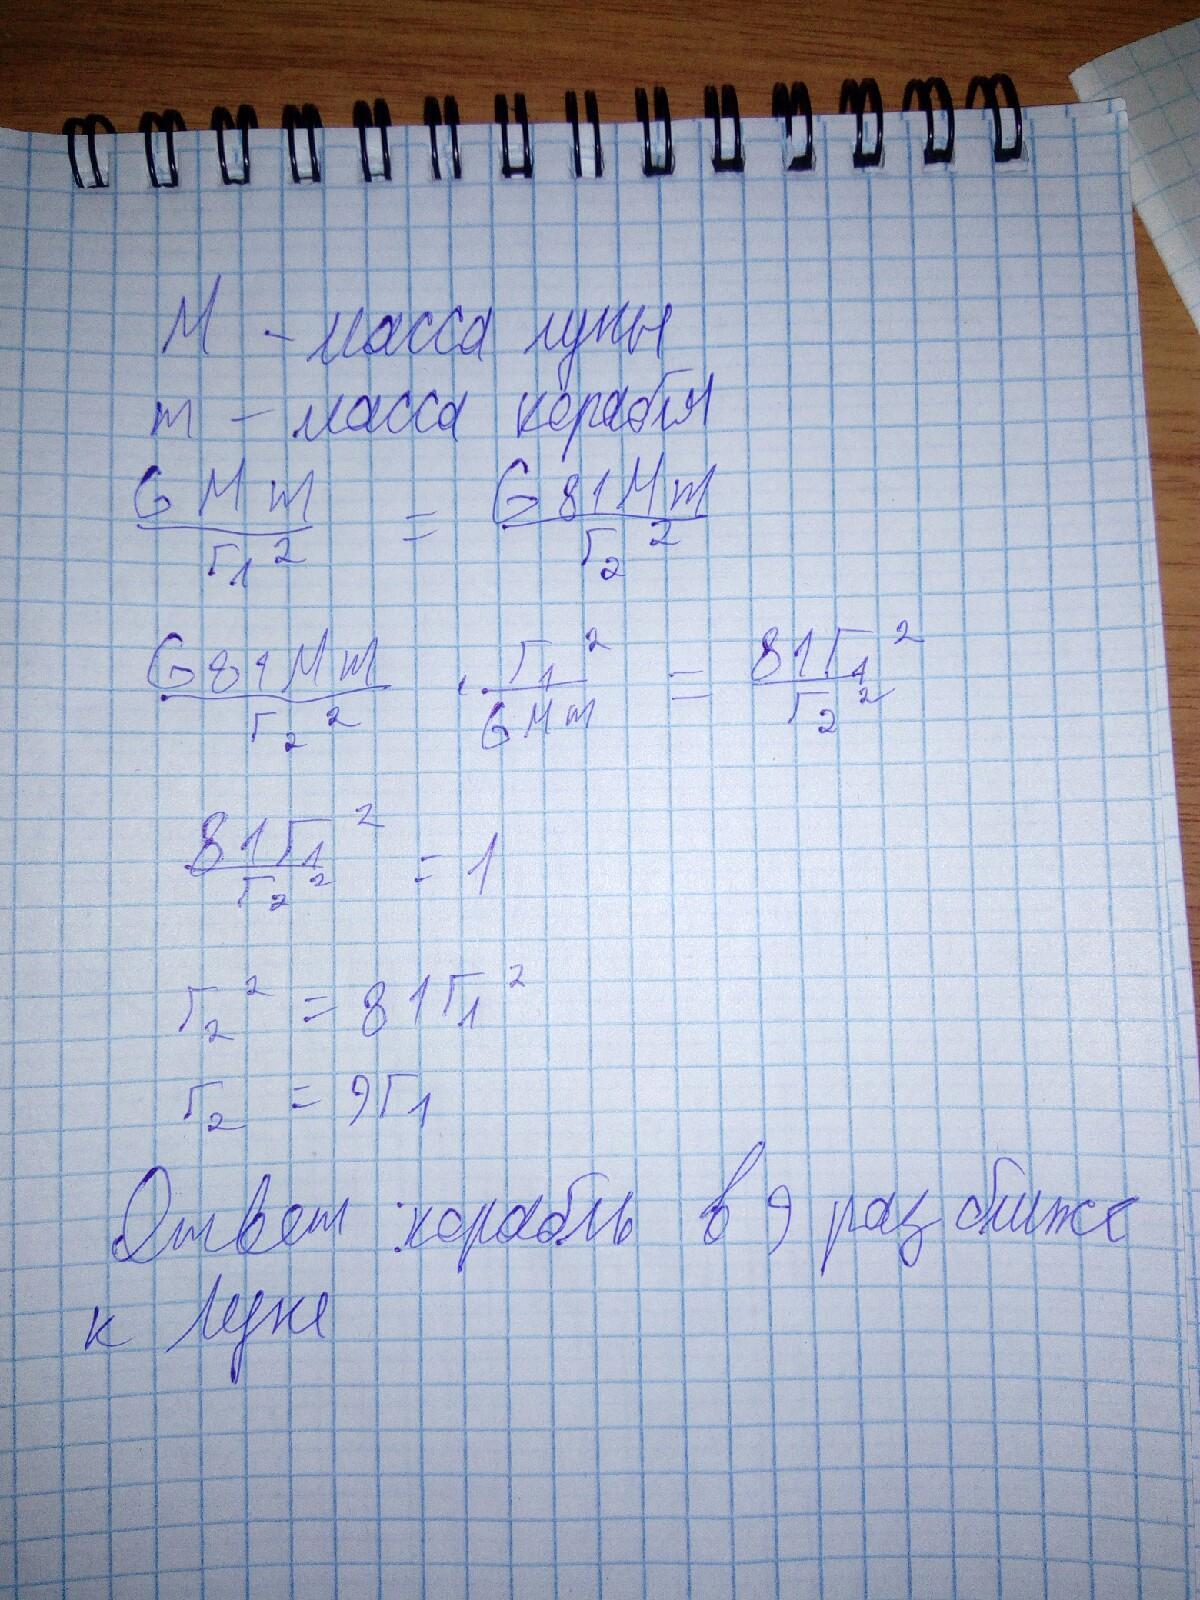 M - масса луны
m - масса корабля
GMm/r₁² = G81Mm/r₂²
G81Mm/r₂² · r₁²/GMm = 81r₁²/r₂²
81r₁²/r₂² = 1
r₂² = 81r₁²
r₂ = 9r₁
Ответ: корабль в 9 раз ближе
к Луне